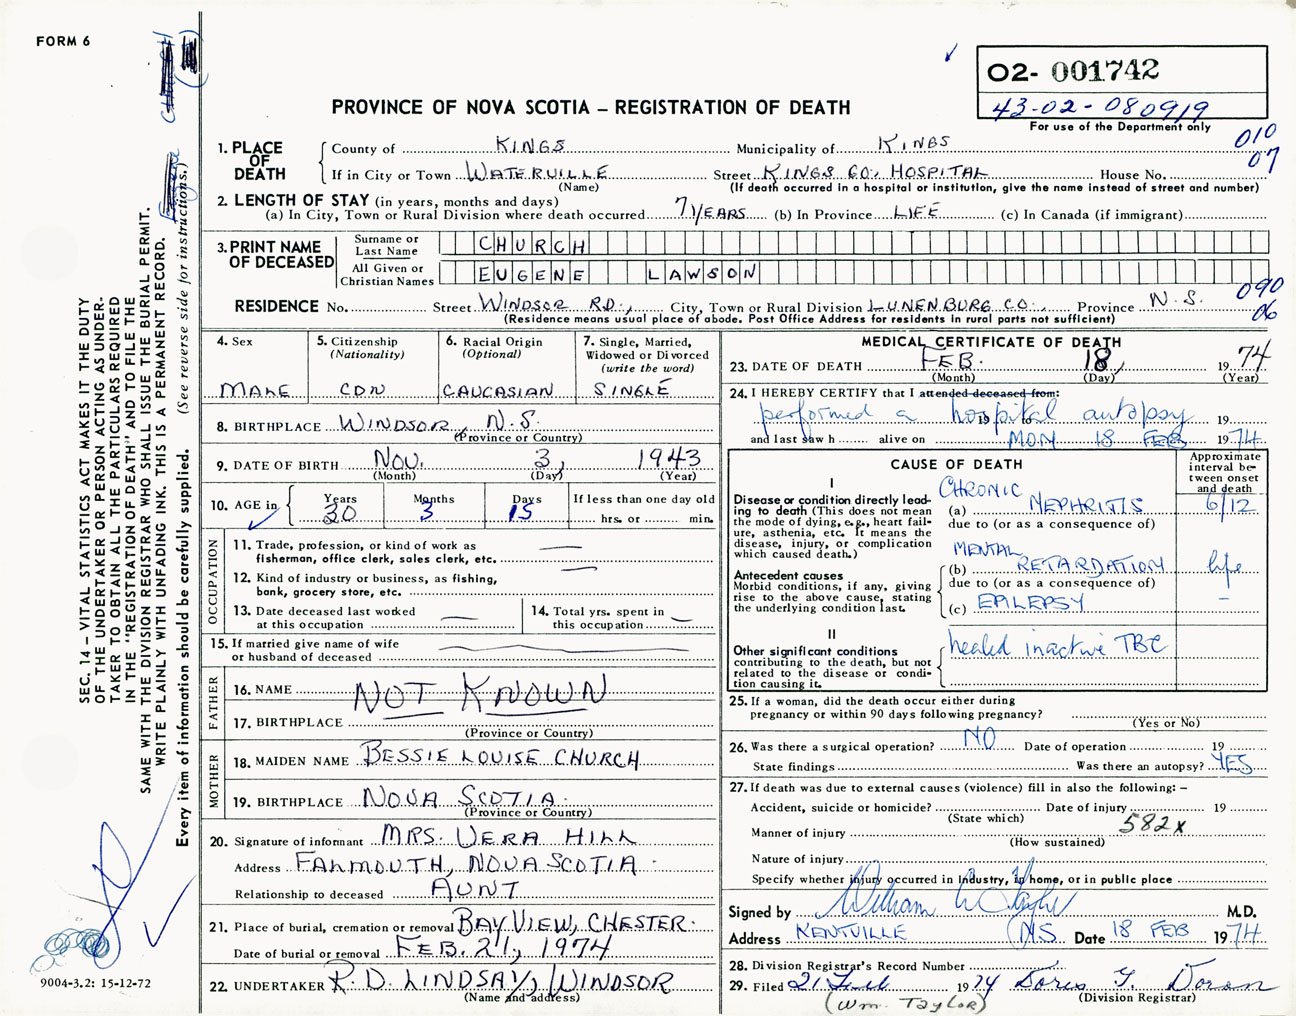 FORM 6
02- 001742
43-02-080919
For use of the Department only
PROVINCE OF NOVA SCOTIA – REGISTRATION OF DEATH
010
07
1. PLACE OF DEATH
County of KINGS Municipality of KINGS
If in City or Town WATERVILLE Street KINGS CO. HOSPITAL House No.
(Name) (If death occurred in a hospital or institution, give the name instead of street and number)
2. LENGTH OF STAY (in years, months and days)
(a) In City, Town or Rural Division where death occurred 7 YEARS (b) In Province LIFE (c) In Canada (if immigrant)
3. PRINT NAME OF DECEASED
Surname or Last Name CHURCH
All Given or Christian Names EUGENE LAWSON
RESIDENCE No. Street WINDSOR RD., City, Town or Rural Division LUNENBURG CO. Province N.S.
090
06
(Residence means usual place of abode. Post Office Address for residents in rural parts not sufficient)
4. Sex
MALE
5. Citizenship
(Nationality)
CDN
6. Racial Origin
(Optional)
CAUCASIAN
7. Single, Married,
Widowed or Divorced
(write the word)
SINGLE
8. BIRTHPLACE WINDSOR, N.S.
(Province or Country)
9. DATE OF BIRTH NOV. 3, 1943
(Month) (Day) (Year)
10. AGE in
Years Months Days If less than one day old
30 3 15 hrs. or min.
OCCUPATION
11. Trade, profession, or kind of work as
fisherman, office clerk, sales clerk, etc. —
12. Kind of industry or business, as fishing,
bank, grocery store, etc. —
13. Date deceased last worked
at this occupation —
14. Total yrs. spent in
this occupation —
15. If married give name of wife
or husband of deceased
FATHER
16. NAME NOT KNOWN
17. BIRTHPLACE
(Province or Country)
MOTHER
18. MAIDEN NAME BESSIE LOUISE CHURCH
19. BIRTHPLACE NOVA SCOTIA.
(Province or Country)
20. Signature of informant MRS. VERA HILL
Address FALMOUTH, NOVA SCOTIA.
Relationship to deceased AUNT
21. Place of burial, cremation or removal BAY VIEW, CHESTER.
Date of burial or removal FEB. 21, 1974
22. UNDERTAKER R. D. LINDSAY, WINDSOR
(Name and address)
MEDICAL CERTIFICATE OF DEATH
23. DATE OF DEATH FEB. 18, 1974
(Month) (Day) (Year)
24. I HEREBY CERTIFY that I attended deceased from:
performed a hospital autopsy
19 to 19
and last saw h alive on MON 18 FEB 1974
CAUSE OF DEATH
Approximate
interval be-
tween onset
and death
I
Disease or condition directly lead-
ing to death (This does not mean
the mode of dying, e.g., heart fail-
ure, asthenia, etc. It means the
disease, injury, or complication
which caused death.)
CHRONIC
(a) NEPHRITIS 6/12
due to (or as a consequence of)
Antecedent causes
Morbid conditions, if any, giving
rise to the above cause, stating
the underlying condition last.
MENTAL
(b) RETARDATION life
due to (or as a consequence of)
(c) EPILEPSY –
II
Other significant conditions
contributing to the death, but not
related to the disease or condi-
tion causing it.
healed inactive TBC
25. If a woman, did the death occur either during
pregnancy or within 90 days following pregnancy?
(Yes or No)
26. Was there a surgical operation? NO Date of operation 19
State findings Was there an autopsy? YES
27. If death was due to external causes (violence) fill in also the following: –
Accident, suicide or homicide? Date of injury 19
(State which)
582x
Manner of injury
(How sustained)
Nature of injury
Specify whether injury occurred in Industry, in home, or in public place
Signed by William M.D.
Address KENTVILLE NS. Date 18 FEB 1974
28. Division Registrar's Record Number
29. Filed 21 Feb 1974 Doris Y. Doran
(Wm. TAYLOR) (Division Registrar)
SEC. 14 – VITAL STATISTICS ACT MAKES IT THE DUTY
OF THE UNDERTAKER OR PERSON ACTING AS UNDER-
TAKER TO OBTAIN ALL THE PARTICULARS REQUIRED
IN THE "REGISTRATION OF DEATH" AND TO FILE THE
SAME WITH THE DIVISION REGISTRAR WHO SHALL ISSUE THE BURIAL PERMIT.
WRITE PLAINLY WITH UNFADING INK. THIS IS A PERMANENT RECORD.
Every item of information should be carefully supplied. (See reverse side for instructions.)
9004-3.2: 15-12-72